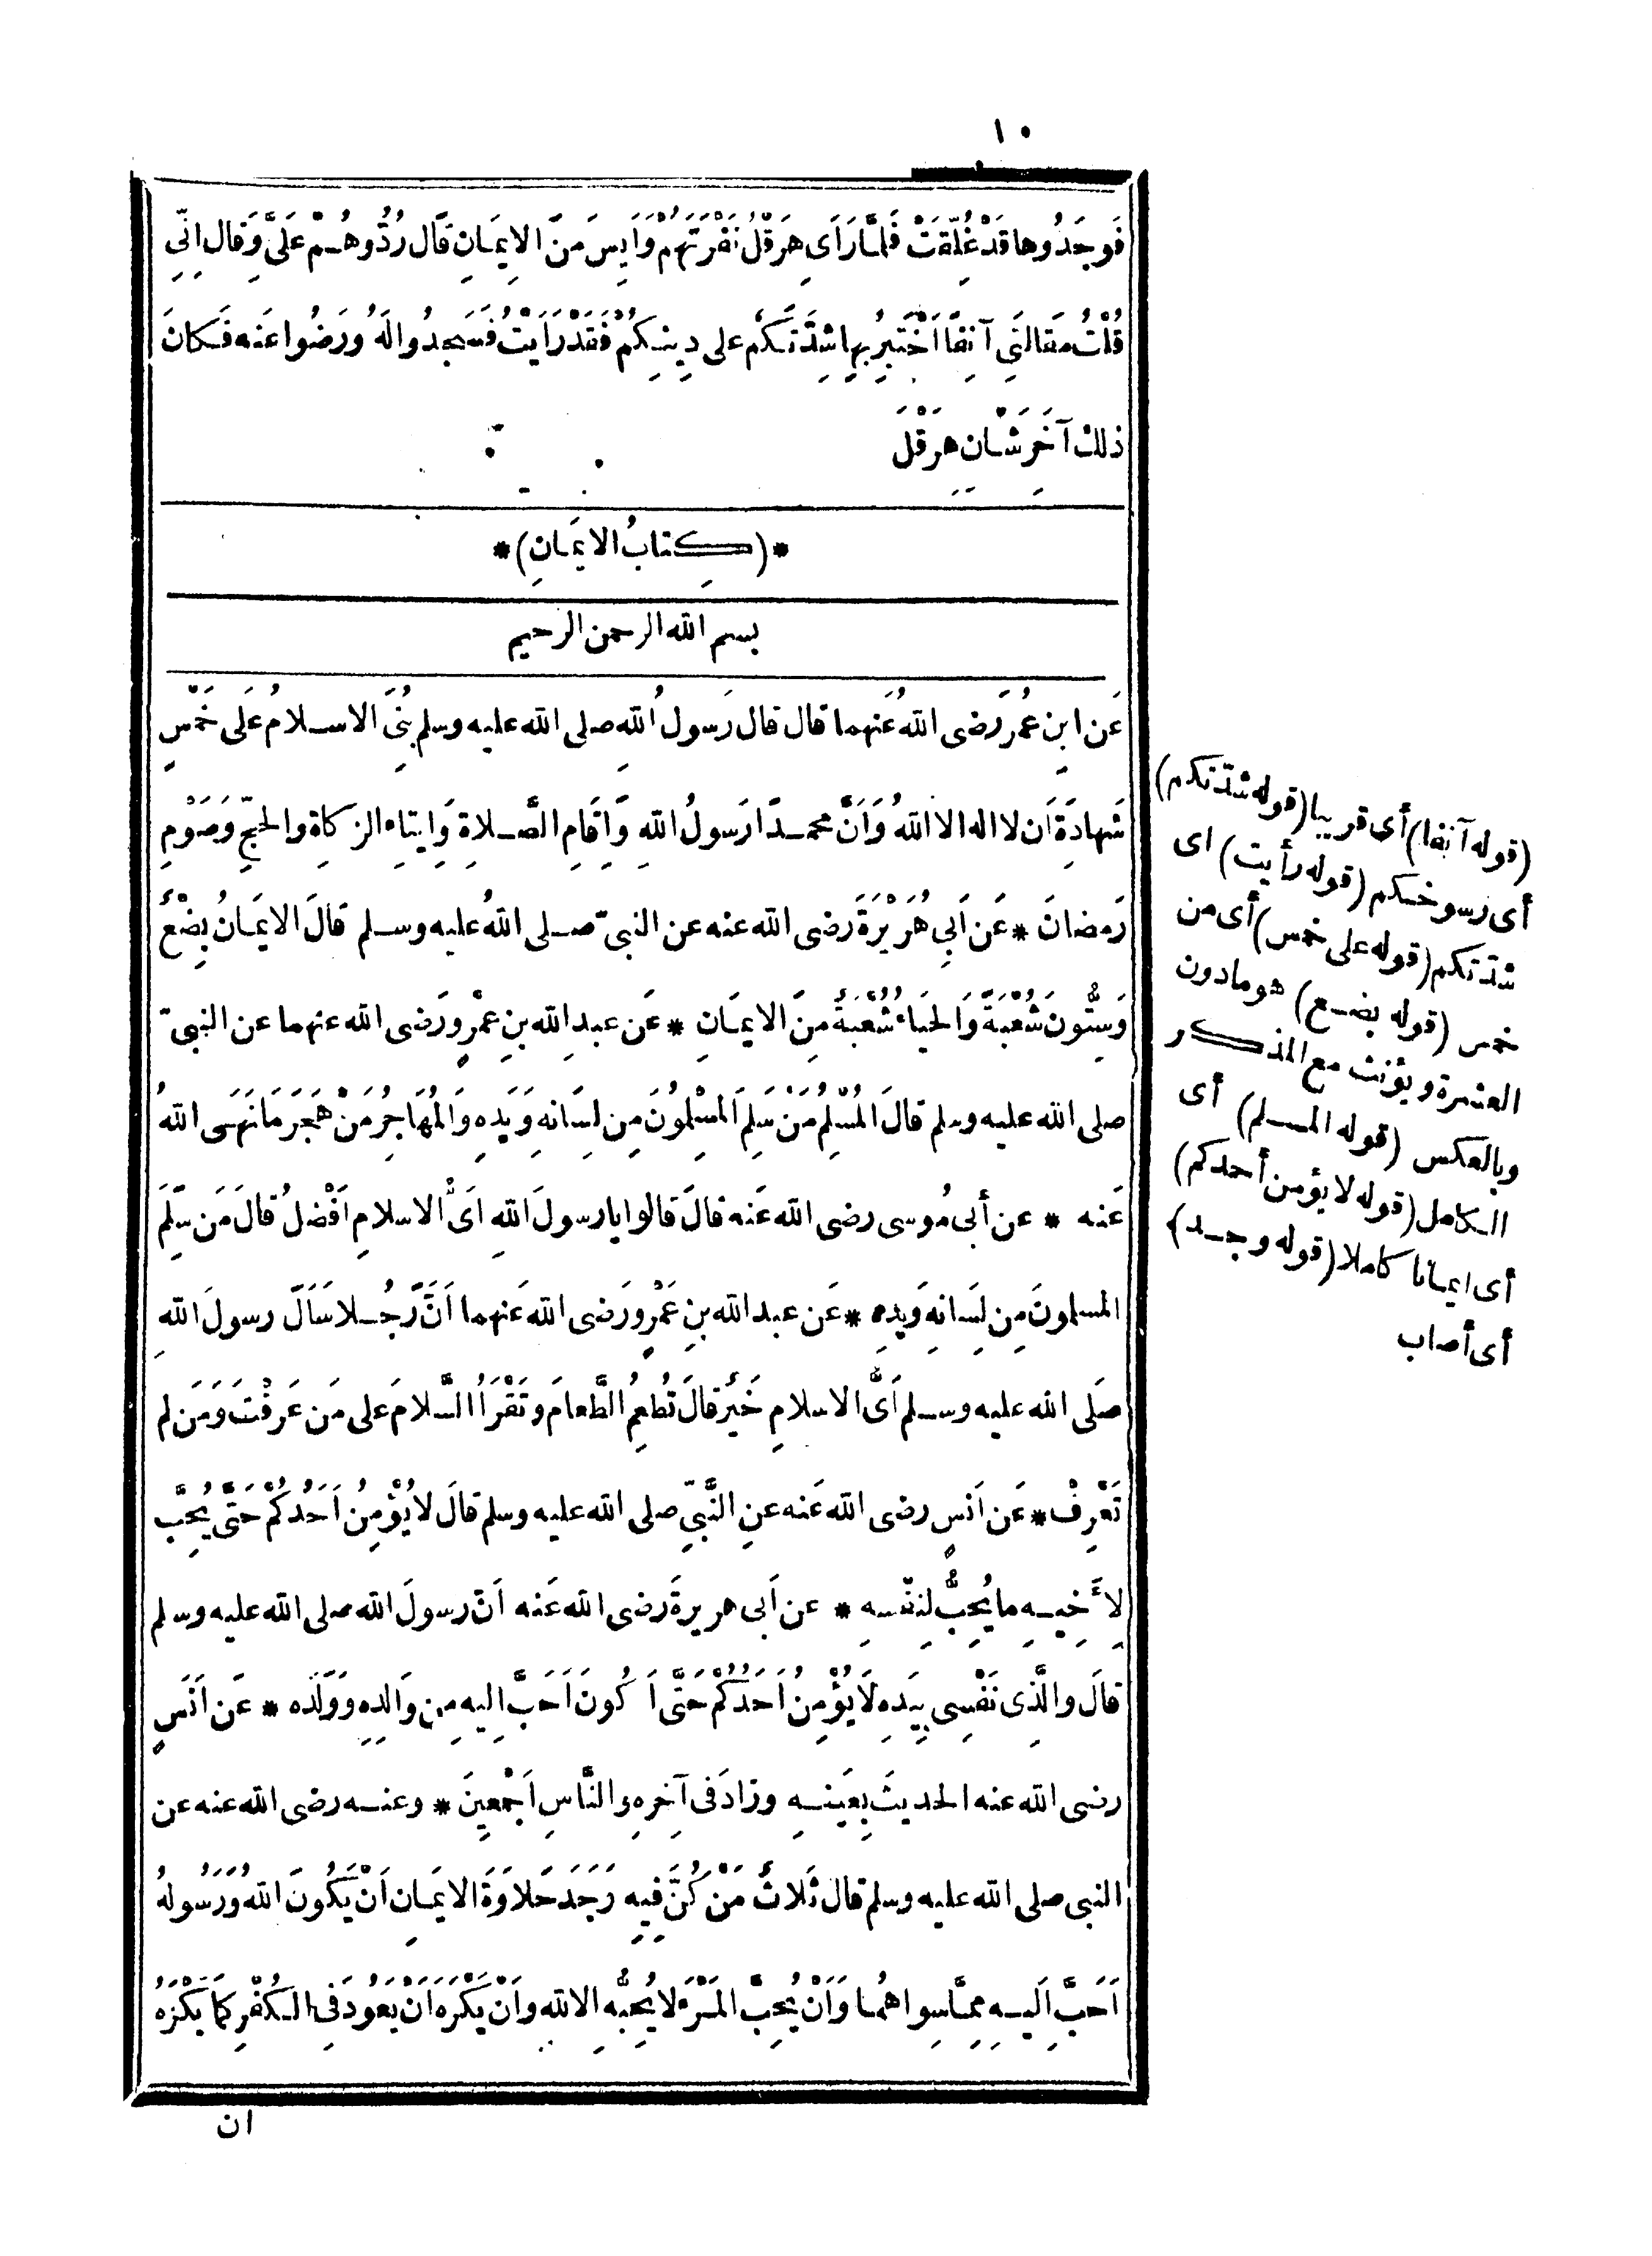 ١٠
فَوَجَدُوها قَدْ غُلِّقَتْ فَلَمَّا رَأَى هِرَقْلُ نَفْرَتَهُمْ وَأَيِسَ مِنَ الايمَانِ قَال رُدُّوهُمْ عَلَىَّ وَقال انِّى
قُلْتُ مَقالَتِى آنِفًا أَخْتَبِرُ بِها شِدَّتَكُمْ على دِينِكُمْ فَقَدْ رَأَيْتُ فَسَجدُوا لَهُ ورَضُوا عَنه فَكانَ
ذلك آخَرَ شَانِ هِرَقْلَ
*(كِتابُ الايمَانِ)*
بسم الله الرحمن الرحيم
عَن ابنِ عُمَرَ رَضى اللهُ عَنهما قال قال رَسولُ اللهِ صلى الله عليه وسلم بُنِىَ الاسلامُ عَلى خَمْسٍ
شَهادَةِ أَن لا اله الا اللهُ وَأَنَّ محمدًا رَسولُ اللهِ وَإِقَامِ الصَّلاةِ وَايتاءِ الزكاةِ والحَجِّ وَصَوْمِ
رَمضانَ * عَن أَبِى هُرَيْرَةَ رَضى الله عنه عن النبىّ صلى اللهُ عليه وسلم قالَ الايمَانُ بِضْعٌ
وَسِتُّونَ شُعْبَةً وَالحَيَاءُ شُعْبَةٌ مِنَ الايمَانِ * عَن عبدِ الله بنِ عَمْرٍو رَضى الله عنهما عن النبىّ
صلى الله عليه وسلم قالَ المُسْلِمُ مَنْ سَلِمَ المُسْلِمُونَ مِن لِسَانِهِ وَيَدِهِ وَالمُهَاجِرُ مَنْ هَجَرَ مَا نَهَى اللهُ
عَنه * عن أبى مُوسى رضى الله عَنه قالَ قالوا يا رسولَ اللهِ أَىُّ الاسلامِ أَفْضلُ قالَ مَن سَلِمَ
المسلمونَ مِن لِسَانِهِ وَيَدِهِ * عَن عبد الله بنِ عَمْرٍو رَضى الله عَنهما أَنَّ رَجُلا سَأَلَ رسولَ اللهِ
صَلى الله عليه وسلم أَىُّ الاسلامِ خَيْرٌ قالَ تُطْعِمُ الطَّعامَ وتَقْرَأُ السَّلامَ على مَن عَرَفْتَ وَمَن لم
تَعْرِفْ * عَن أَنَسٍ رضى الله عَنه عنِ النَّبِىِّ صلى الله عليه وسلم قالَ لا يُؤْمِنُ أَحَدُكُمْ حَتَّى يُحِبَّ
لِأَخِيهِ ما يُحِبُّ لِنَفْسِهِ * عن أَبى هريرةَ رَضى الله عَنه أنّ رسولَ الله صلى الله عليه وسلم
قالَ والَّذِى نَفْسِى بِيَدِهِ لَا يُؤْمِنُ أَحَدُكُمْ حَتَّى أَكُونَ أَحَبَّ إِليهِ مِن وَالِدِهِ وَوَلَدِه * عَن أَنَسٍ
رضى الله عنه الحديثَ بِعَينِهِ وزادَ فى آخِرِهِ والنَّاسِ أَجْمَعِينَ * وعنه رضى الله عنه عن
النبى صلى الله عليه وسلم قال ثَلاثٌ مَنْ كُنَّ فِيهِ وَجَدَ حَلاوَةَ الايمَانِ أَنْ يَكُونَ اللهُ وَرَسُولهُ
أَحَبَّ إِلَيهِ مِمَّا سِواهُمَا وَأَنْ يُحِبَّ المَرْءَ لا يُحِبُّهُ الا للهِ وأَنْ يَكْرَهَ أَنْ يَعُودَ فى الكُفْرِ كَمَا يَكْرَهُ
ان
(قوله آنفا) أى قريبا (قوله شدّتكم)
أى رسوخكم (قوله رأيت) اى
شدّتكم (قوله على خمس) أى من
خمس (قوله بضع) هو ما دون
العشرة ويؤنث مع المذكر
وبالعكس (قوله المسلم) أى
الكامل (قوله لا يؤمن أحدكم)
أى ايمانا كاملا (قوله وجد)
أى أصاب